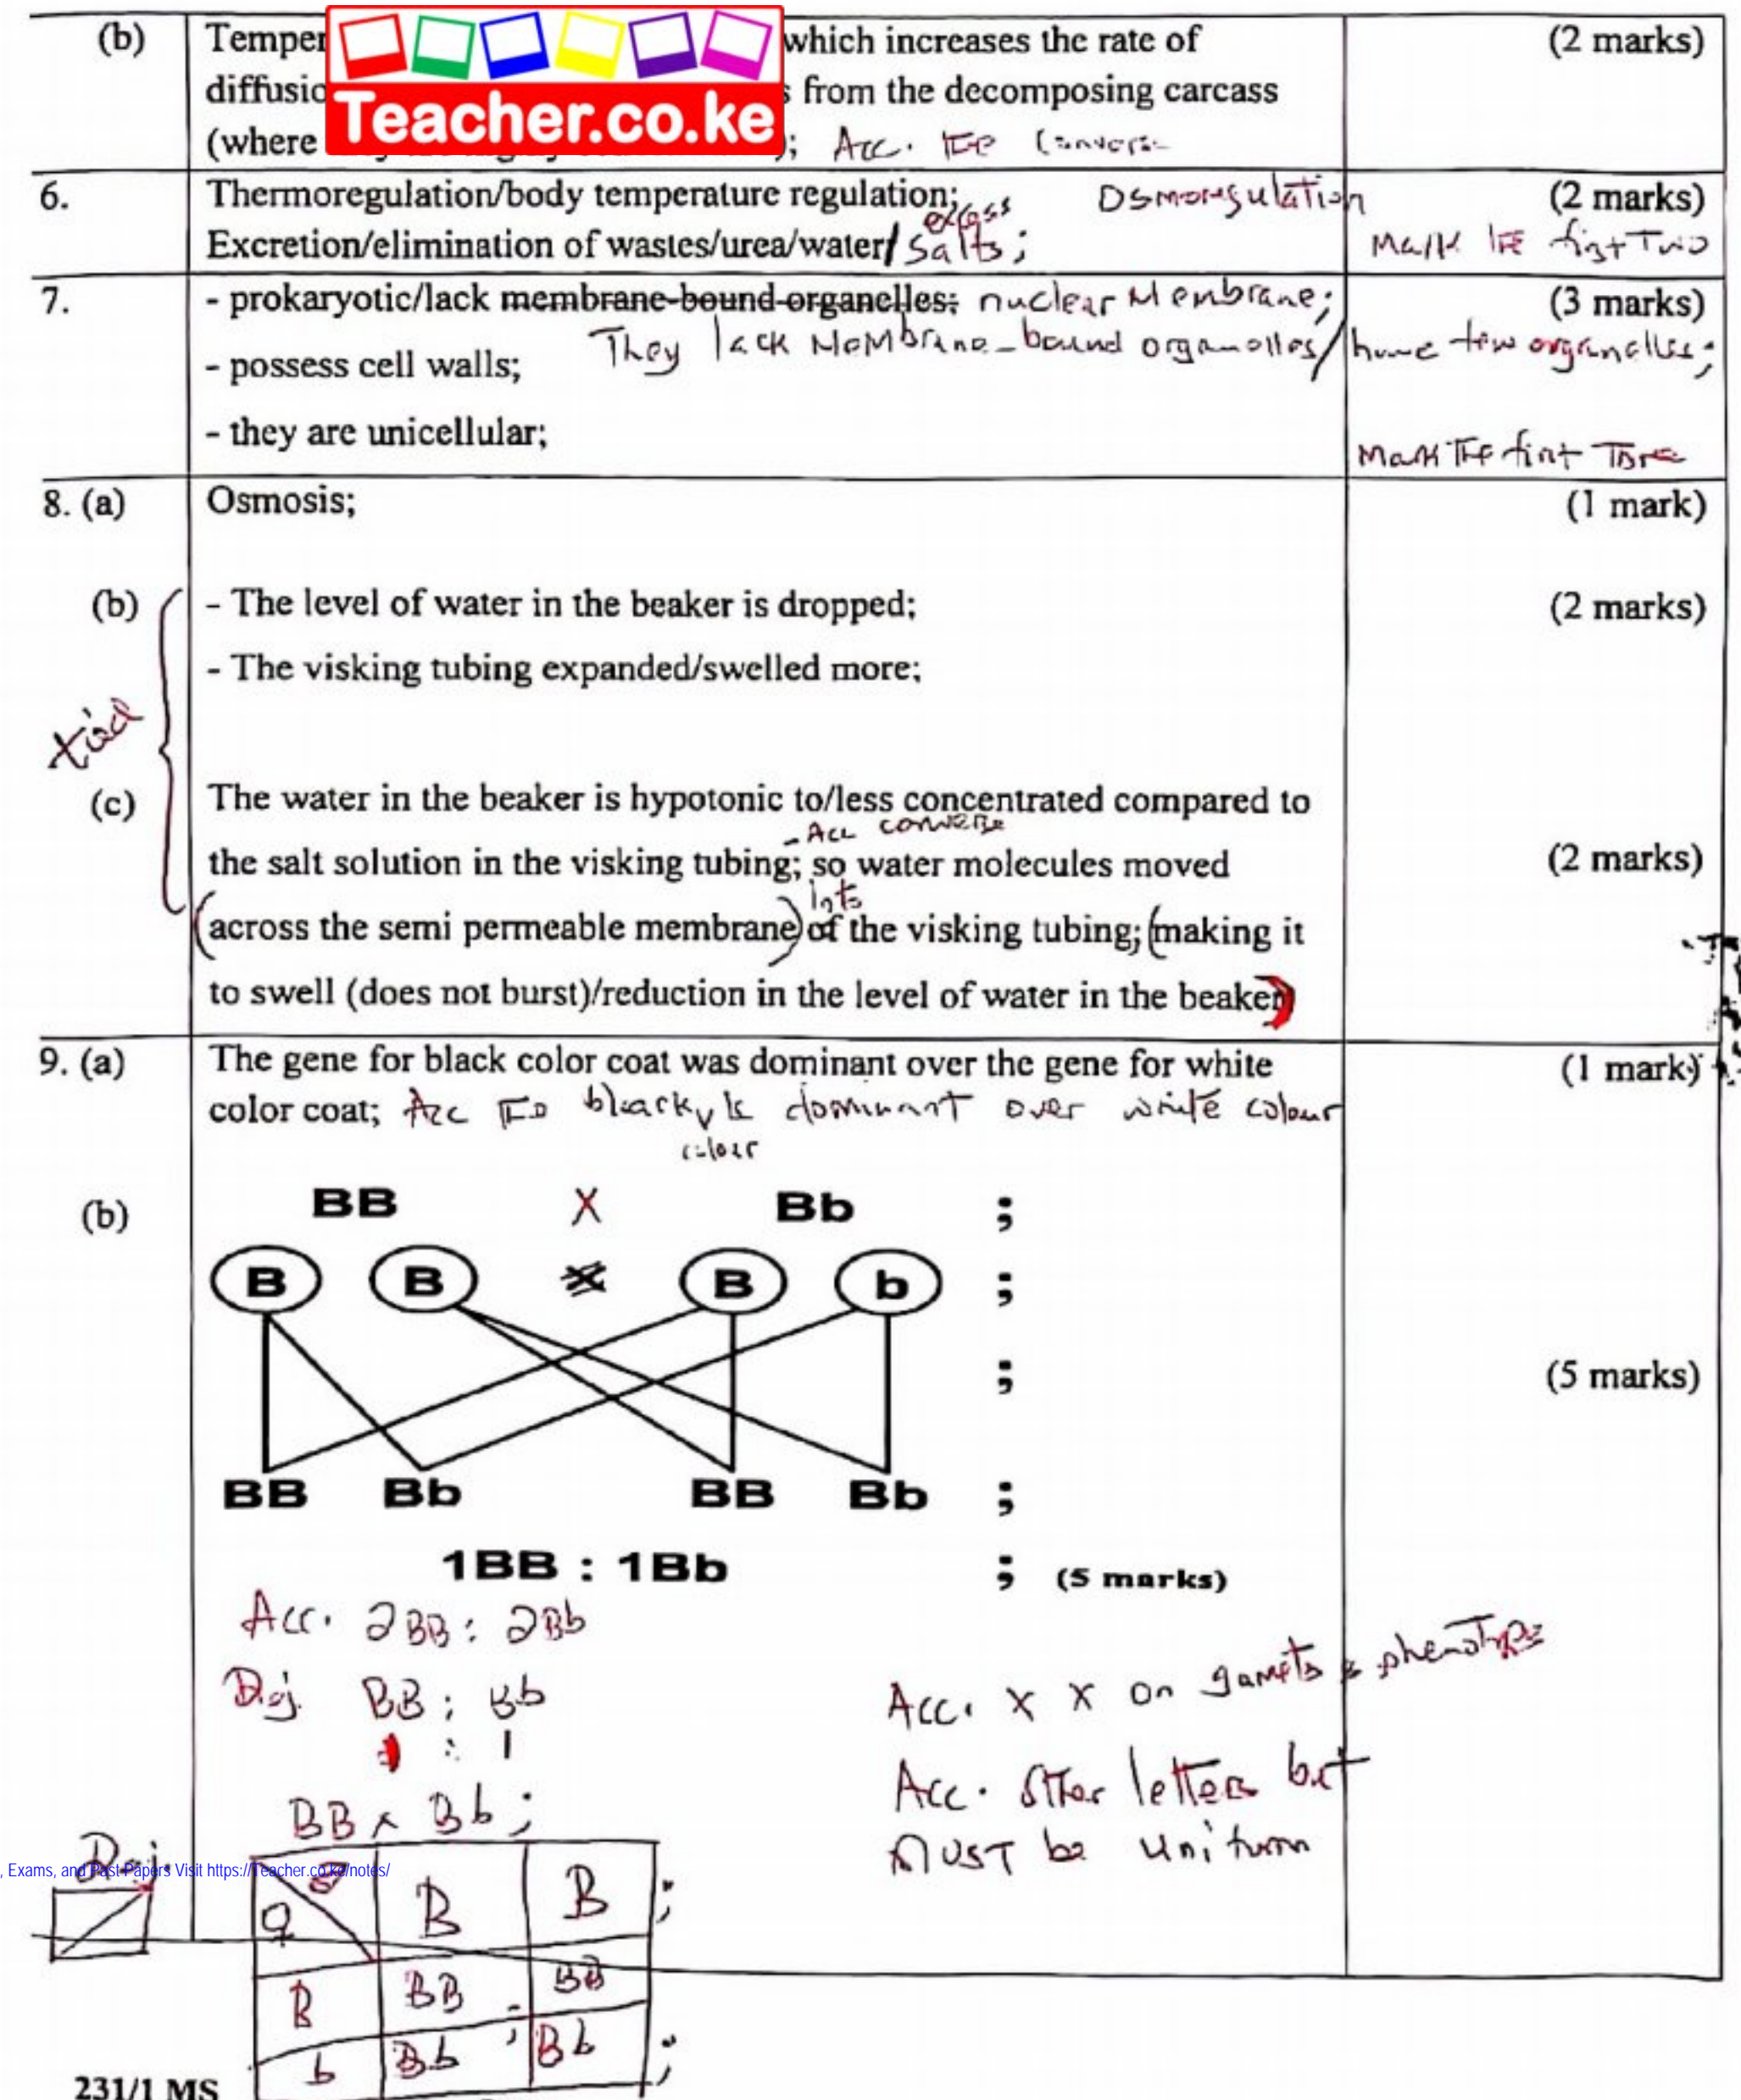 (b) Temper which increases the rate of (2 marks)
diffusio s from the decomposing carcass
Teacher.co.ke
(where ); Acc.
6. Thermoregulation/body temperature regulation; Osmoregulation (2 marks)
excess
Excretion/elimination of wastes/urea/water/ salts; Mark the first Two
7. - prokaryotic/lack membrane-bound organelles; nuclear Membrane; (3 marks)
They lack MeMbrane-bound organelles/ have few organelles;
- possess cell walls;
- they are unicellular;
Mark The first Three
8. (a) Osmosis; (1 mark)
(b) - The level of water in the beaker is dropped; (2 marks)
- The visking tubing expanded/swelled more;
tied
(c) The water in the beaker is hypotonic to/less concentrated compared to
- Acc converse
the salt solution in the visking tubing; so water molecules moved (2 marks)
into
(across the semi permeable membrane) of the visking tubing; (making it
to swell (does not burst)/reduction in the level of water in the beaker)
9. (a) The gene for black color coat was dominant over the gene for white (1 mark)
color coat; Acc dominant over white colour
colour
(b) BB X Bb ;
B B B b ;
; (5 marks)
BB Bb BB Bb ;
1BB : 1Bb ; (5 marks)
Acc. 2BB : 2Bb
Rej. BB : Bb
: 1
Acc. X X on gamets & phenotype
Acc. other letters but
MUST be uniform
BB x Bb ;
Rej.
, Exams, and Past Papers Visit https://Teacher.co.ke/notes/
♀ ♂ B B ;
B BB BB
;
b Bb Bb ;
231/1 MS